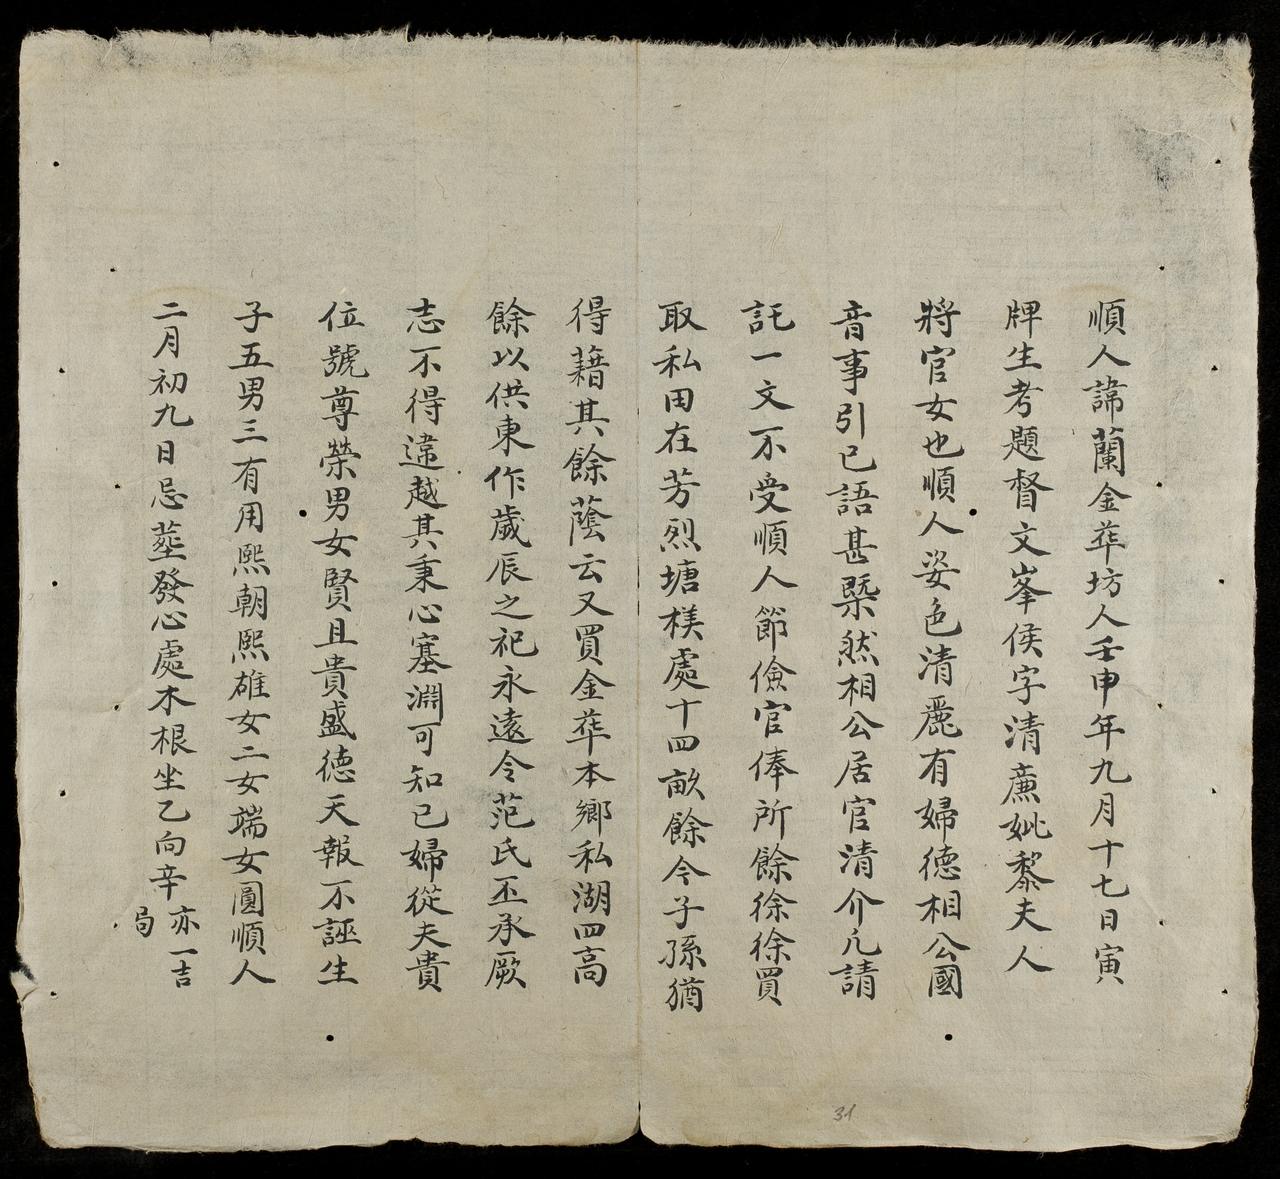 順人諱蘭金華坊人壬申年九月十七日寅
牌生考題督文峯侯字清廉妣黎夫人
將官女也順人姿色清麗有婦德相公國
音事引已語甚槩然相公居官清介凢請
託一文不受順人節儉官俸所餘徐徐買
取私田在芳烈塘檨處十四畝餘今子孫猶
得藉其餘蔭云又買金華本鄉私湖四高
餘以供東作歲辰之祀永遠令范氏丕承厥
志不得違越其秉心塞淵可知已婦從夫貴
位號尊榮男女賢且貴盛德天報不誣生
子五男三有用熙朝熙雄女二女端女圓順人
二月初九日忌塟發心處木根坐乙向辛亦一吉
局
31